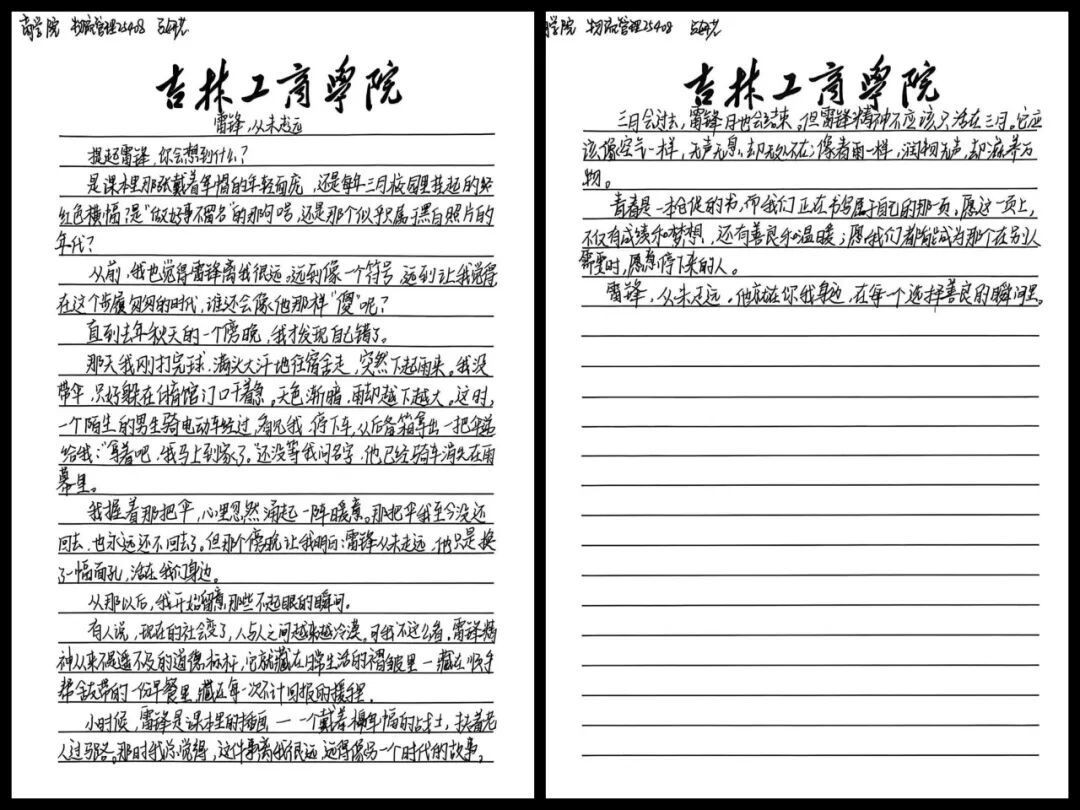 商学院 物流管理25408
吉林工商學院
雷锋,从未走远
提起雷锋,你会想到什么?
是课本里那张戴着军帽的年轻面庞,还是每年三月校园里挂起的经
红色横幅?是“做好事不留名”的那句口号,还是那个似乎只属于黑白照片的
年代?
从前,我也觉得雷锋离我很远。远到像一个符号,远到让我觉得
在这个步履匆匆的时代,谁还会像他那样“傻”呢?
直到去年秋天的一个傍晚,我才发现自己错了。
那天我刚打完球,满头大汗地往宿舍走,突然下起雨来。我没
带伞,只好躲在体育馆门口干着急。天色渐暗,雨却越下越大。这时,
一个陌生的男生骑电动车经过,看见我,停下车,从后备箱拿出一把伞递
给我:“拿着吧,我马上到家了。”还没等我问名字,他已经骑车消失在雨
幕里。
我握着那把伞,心里忽然涌起一阵暖意。那把伞我至今没还
回去,也永远还不回去了。但那个傍晚让我明白:雷锋从未走远,他只是换
了一幅面孔,活在我们身边。
从那以后,我开始留意那些不起眼的瞬间。
有人说,现在的社会变了,人与人之间越来越冷漠。可我不这么看。雷锋精
神从来不是遥不可及的道德标杆,它就藏在日常生活的褶皱里—藏在顺手
帮舍友带的一份早餐里,藏在每一次不计回报的援手里。
小时候,雷锋是课本里的插画——一个戴着棉军帽的战士,扶着老
人过马路。那时我总觉得,这件事离我很远,远得像另一个时代的故事。
商学院 物流管理25408
吉林工商學院
三月会过去,雷锋月也会结束。但雷锋精神不应该只活在三月。它应
该像空气一样,无声无息,却无处不在;像春雨一样,润物无声,却滋养万
物。
青春是一本仓促的书,而我们正在书写属于自己的那一页。愿这一页上,
不仅有成绩和梦想,还有善良和温暖;愿我们都能成为那个在别人
需要时,愿意停下来的人。
雷锋,从未走远。他就在你我身边,在每一个选择善良的瞬间里。